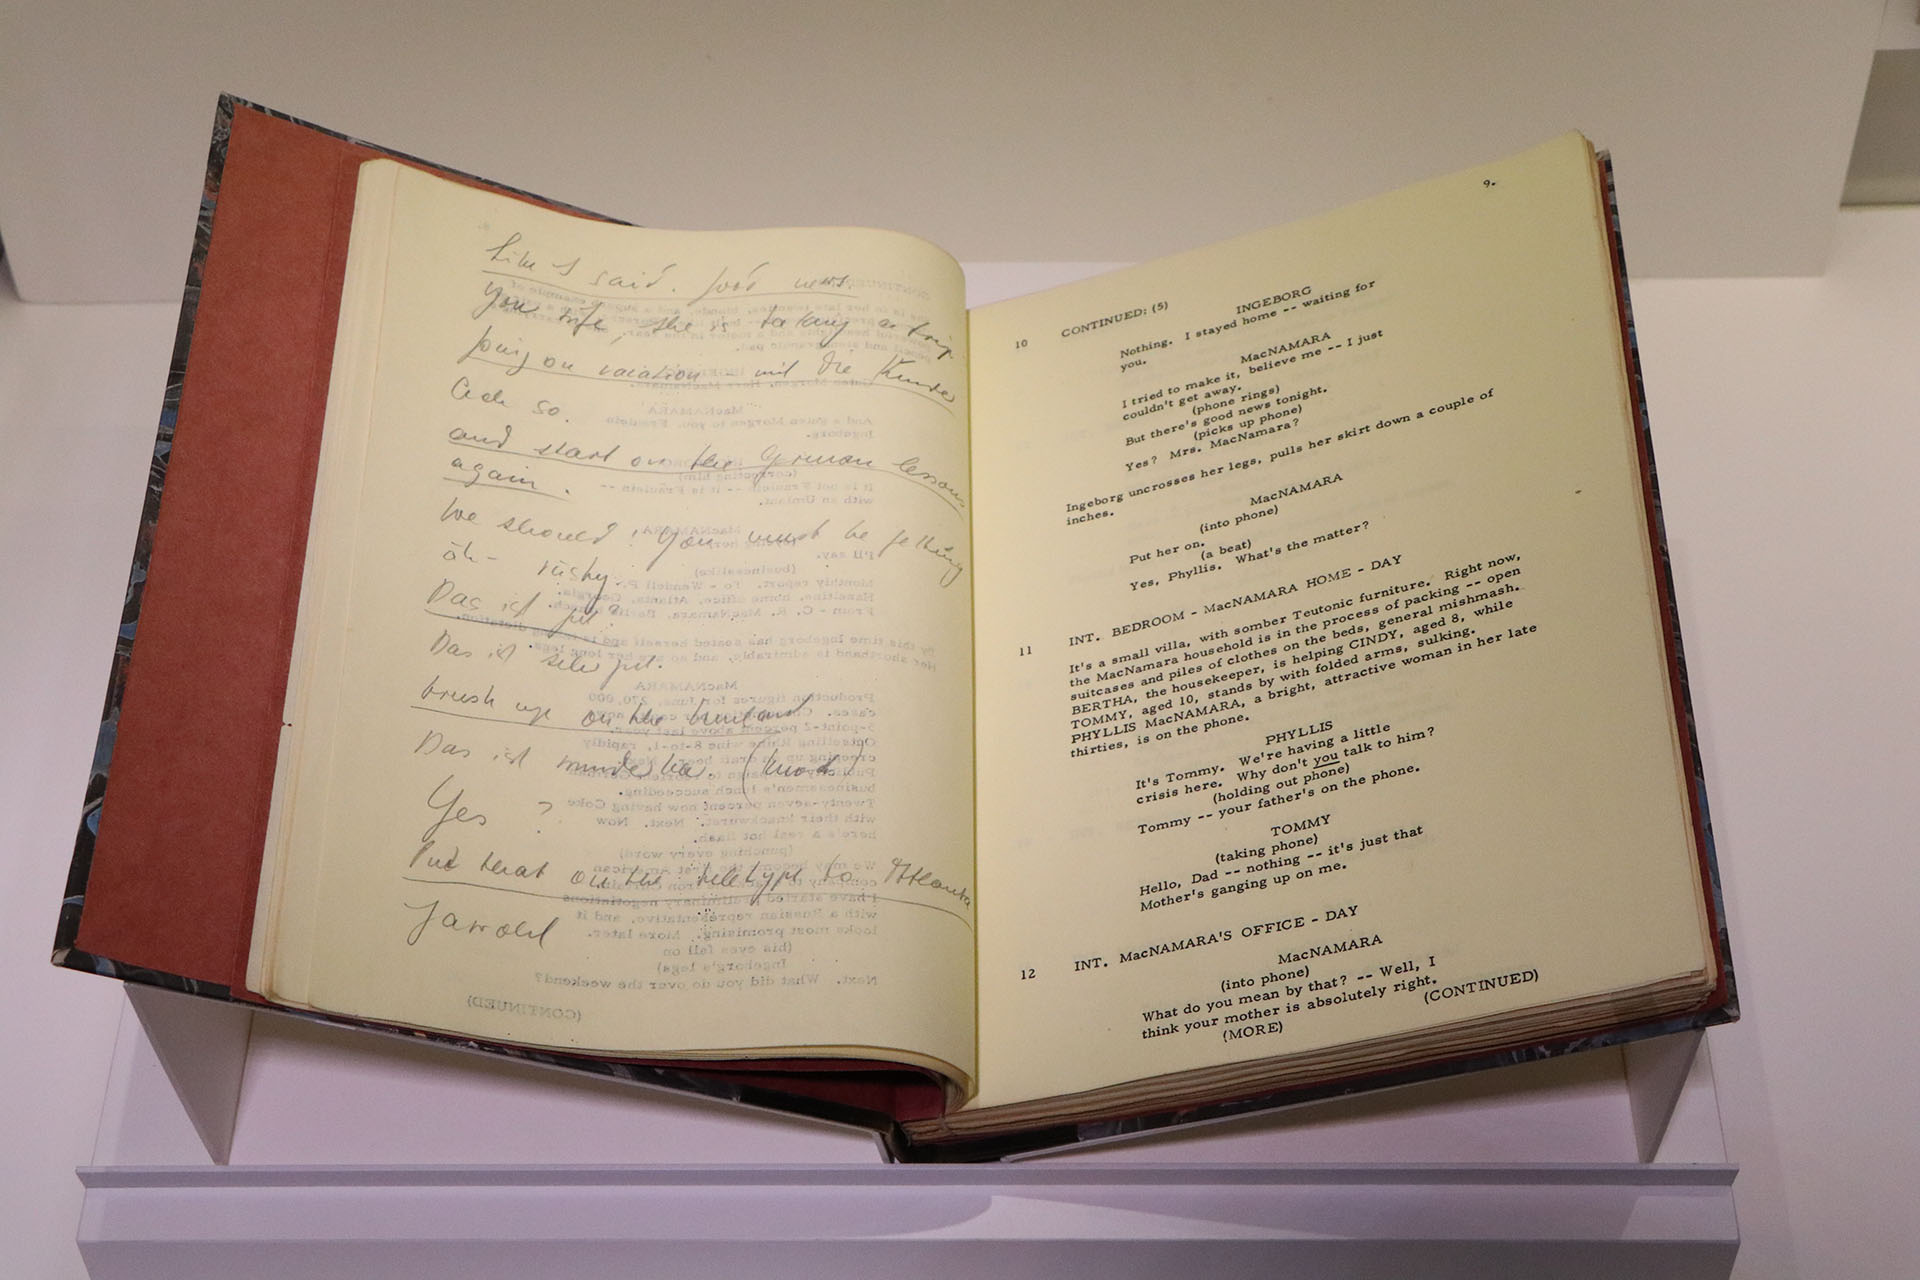 Like I said. good news.
Your wife, she is taking a trip.
going on vacation - mit die Kinder
Ach so.
and start on the German lessons
again.
We should! You must be getting
öh - rusty.
Das ist gut.
Das ist sehr gut.
brush up on the umlaut
Das ist wunderbar. (knock)
Yes ?
Put that on the teletype to Atlanta
Jawohl
9.
10 CONTINUED: (5)
INGEBORG
Nothing. I stayed home -- waiting for
you.
MacNAMARA
I tried to make it, believe me -- I just
couldn't get away.
(phone rings)
But there's good news tonight.
(picks up phone)
Yes? Mrs. MacNamara?
Ingeborg uncrosses her legs, pulls her skirt down a couple of
inches.
MacNAMARA
(into phone)
Put her on.
(a beat)
Yes, Phyllis. What's the matter?
11 INT. BEDROOM - MacNAMARA HOME - DAY
It's a small villa, with somber Teutonic furniture. Right now,
the MacNamara household is in the process of packing -- open
suitcases and piles of clothes on the beds, general mishmash.
BERTHA, the housekeeper, is helping CINDY, aged 8, while
TOMMY, aged 10, stands by with folded arms, sulking.
PHYLLIS MacNAMARA, a bright, attractive woman in her late
thirties, is on the phone.
PHYLLIS
It's Tommy. We're having a little
crisis here. Why don't you talk to him?
(holding out phone)
Tommy -- your father's on the phone.
TOMMY
(taking phone)
Hello, Dad -- nothing -- it's just that
Mother's ganging up on me.
12 INT. MacNAMARA'S OFFICE - DAY
MacNAMARA
(into phone)
What do you mean by that? -- Well, I
think your mother is absolutely right.
(MORE)
(CONTINUED)